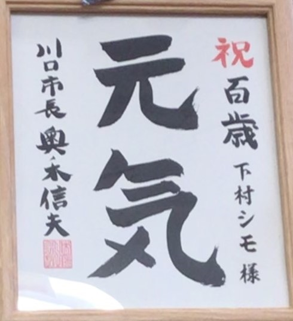 祝 百歳 下村シモ様
元気
川口市長 奥ノ木信夫